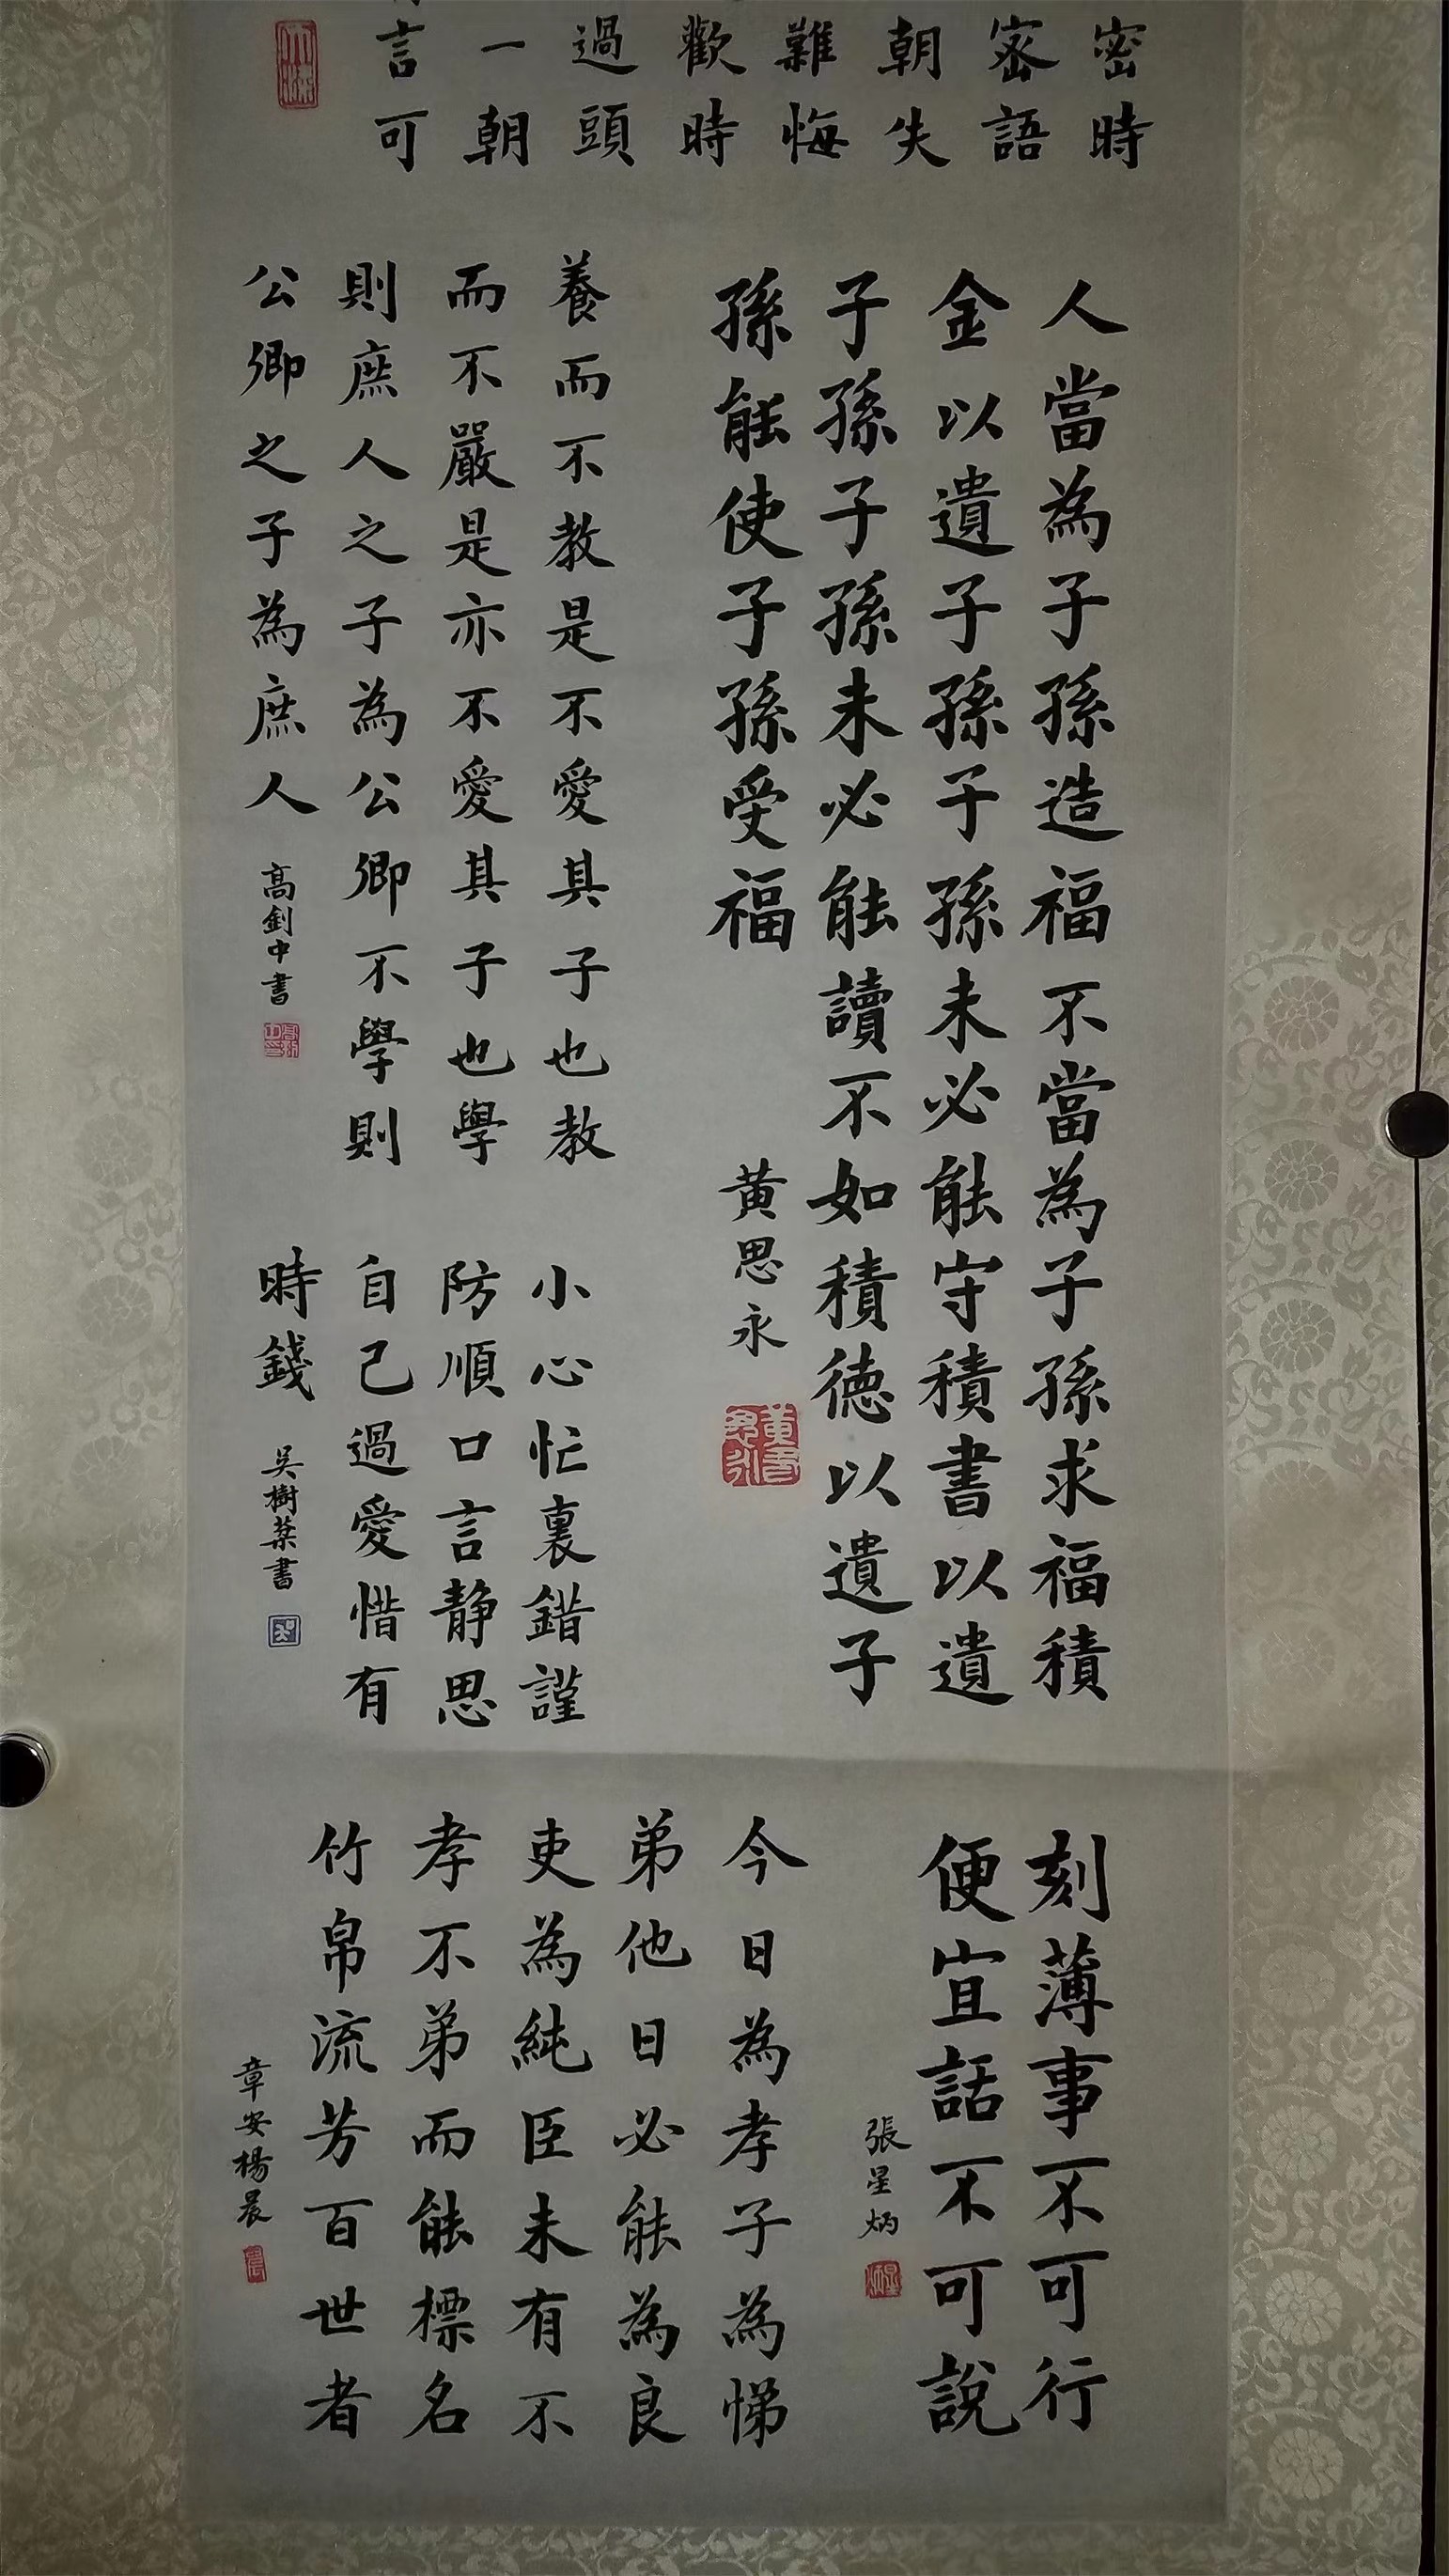 密時
密語
朝失
難悔
歡時
過頭
一朝
言可
人當為子孫造福不當為子孫求福積
金以遺子孫子孫未必能守積書以遺
子孫子孫未必能讀不如積德以遺子
孫能使子孫受福
黃思永
養而不教是不愛其子也教
而不嚴是亦不愛其子也學
則庶人之子為公卿不學則
公卿之子為庶人
高釗中書
小心忙裏錯謹
防順口言靜思
自己過愛惜有
時錢
吳樹棻書
刻薄事不可行
便宜話不可說
張星炳
今日為孝子為悌
弟他日必能為良
吏為純臣未有不
孝不弟而能標名
竹帛流芳百世者
章安楊晨